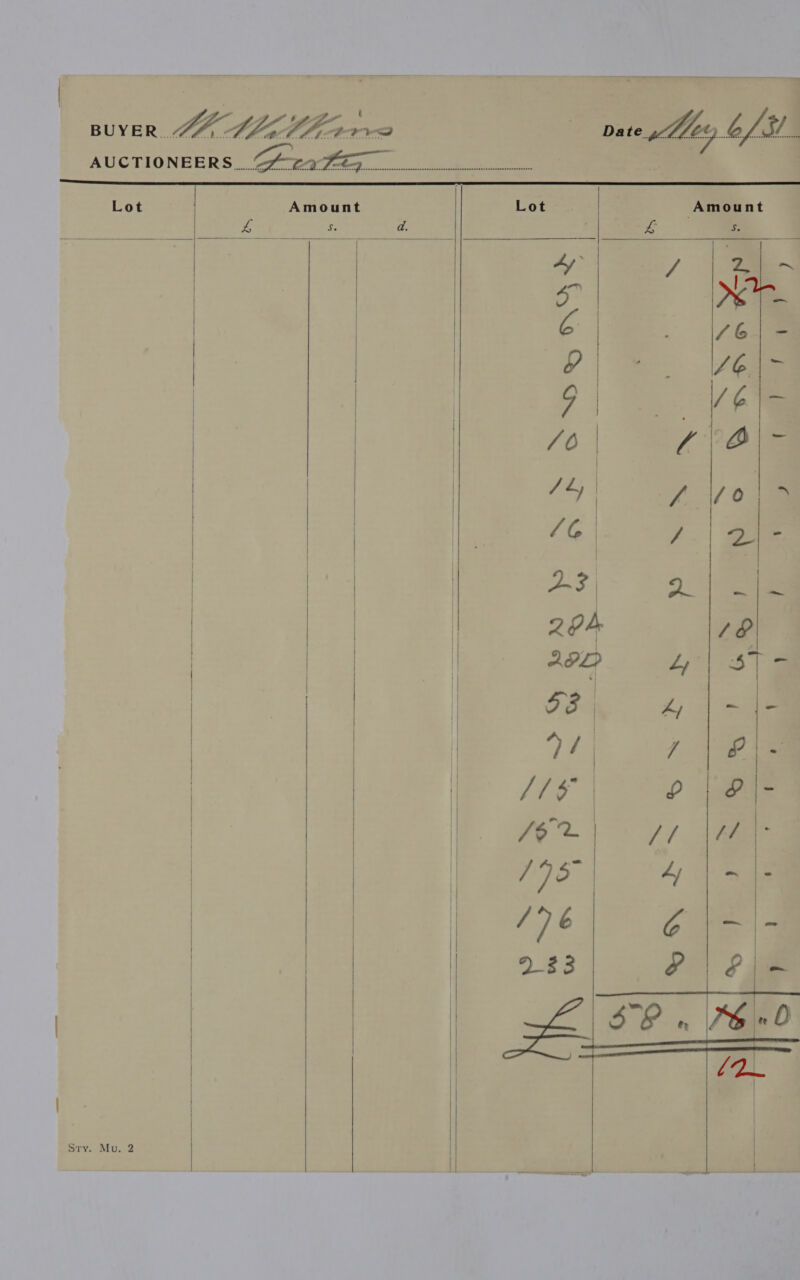 BUYER W. Williams Date May 6/31
AUCTIONEERS
Lot Amount Lot Amount
£ s. d. £ s.
4 1 2 -
5 12 -
6 16 -
8 16 -
9 16 -
10 1 0 -
14 1 10 -
16 1 2 -
23 2 - -
28A 18
28D 4 5 -
53 4 - -
71 1 8 -
115 8 8 -
152 11 11 -
175 4 - -
176 6 - -
233 8 8 -
£ 58 " 16 " 0
12
Sty. Mu. 2